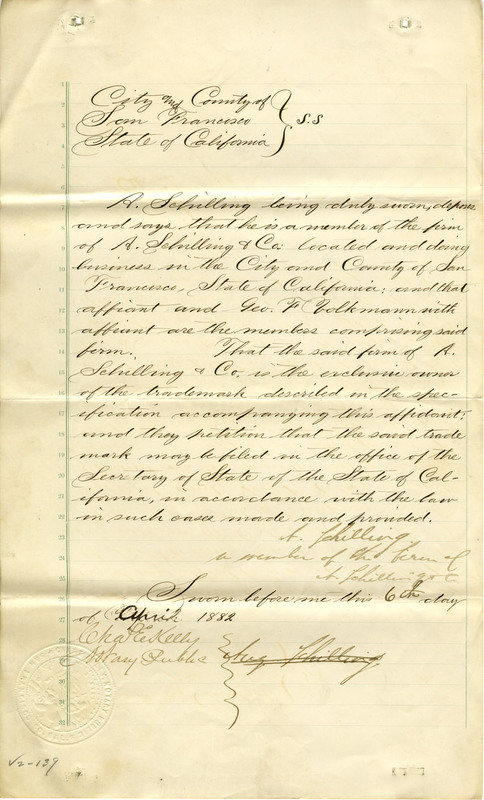 City and County of
San Francisco } S.S
State of California
A. Schilling being duly sworn, deposes
and says that he is a member of the firm
of A. Schilling & Co. located and doing
business in the City and County of San
Francisco, State of California; and that
affiant and Geo. F Volkmann with
affiant are the members comprising said
firm. That the said firm of A.
Schilling & Co. is the exclusive owner
of the trademark described in the spec-
ification accompanying this affidavit;
and they petition that the said trade
mark may be filed in the office of the
Secretary of State of the State of Cal-
ifornia, in accordance with the law
in such cases made and provided.
A. Schilling
a member of the firm of
A. Schilling & Co
Sworn before me this 6th day
of April 1882
Chas E Kelly
Notary Public
Aug Schilling
V2-139